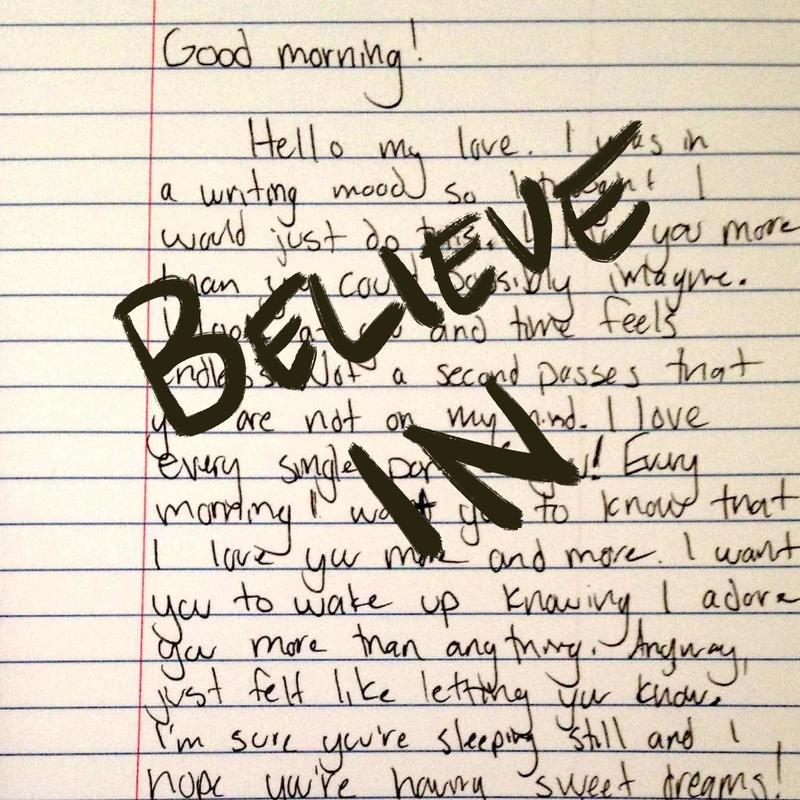 Good morning!
Hello my love. I was in
a writing mood so I thought I
would just do this. I love you more
than you could possibly imagine.
I look at you and time feels
endless. Not a second passes that
you are not on my mind. I love
every single part of you! Every
morning I want you to know that
I love you more and more. I want
you to wake up knowing I adore
you more than anything. Anyway,
just felt like letting you know.
I'm sure you're sleeping still and I
hope you're having sweet dreams!
BELIEVE
IN